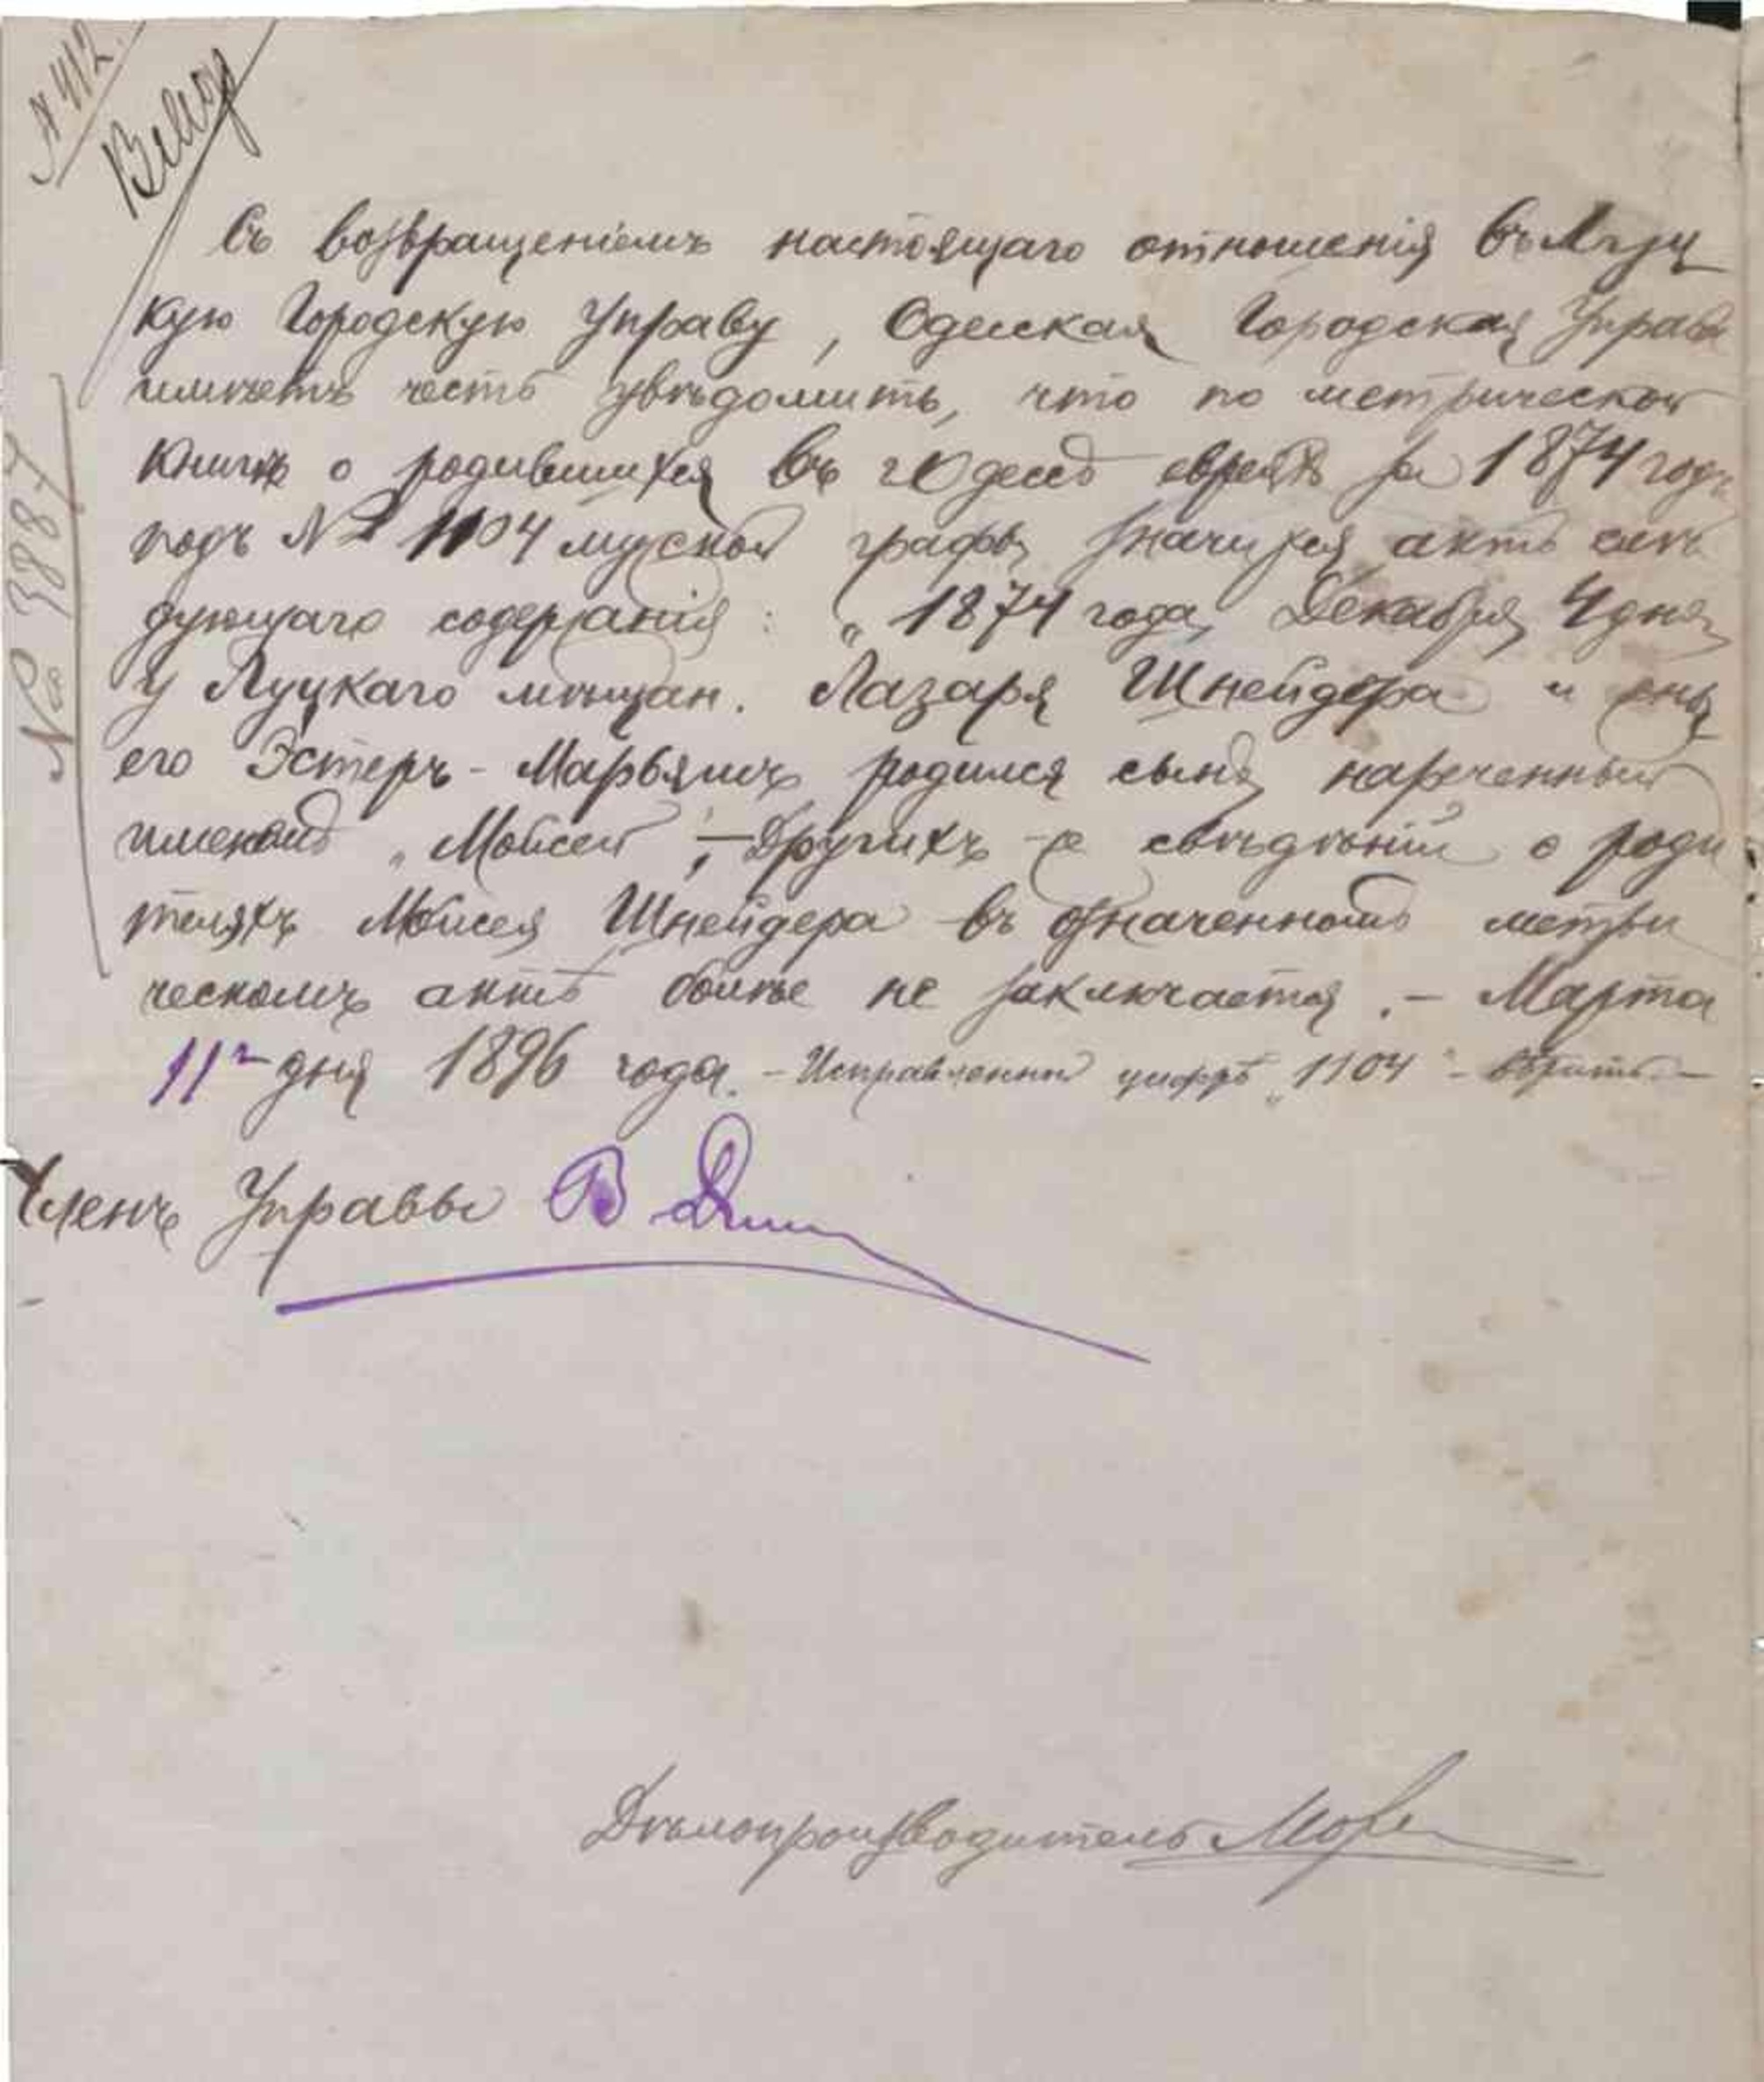 № 412.
№ 3887
Съ возвращеніемъ настоящаго отношенія въ Луц
кую Городскую Управу, Одесская Городская Управа
имѣетъ честь увѣдомить, что по метрической
книгѣ о родившихся въ г Одессѣ евреяхъ за 1874 годъ
подъ № 1104 мужской графы значится актъ слѣ
дующаго содержанія: „1874 года, Декабря 4 дня
у Луцкаго мѣщан. Лазаря Шнейдера и жены
его Эстеръ-Марьямъ родился сынъ нареченный
именемъ „Мойсей"; — Другихъ свѣдѣній о роди
теляхъ Мойсея Шнейдера въ означенномъ метри
ческомъ актѣ болѣе не заключается. — Марта
11 дня 1896 года. — Исправленной цифрѣ „1104" — вѣрить. —
Членъ Управы В
Дѣлопроизводитель